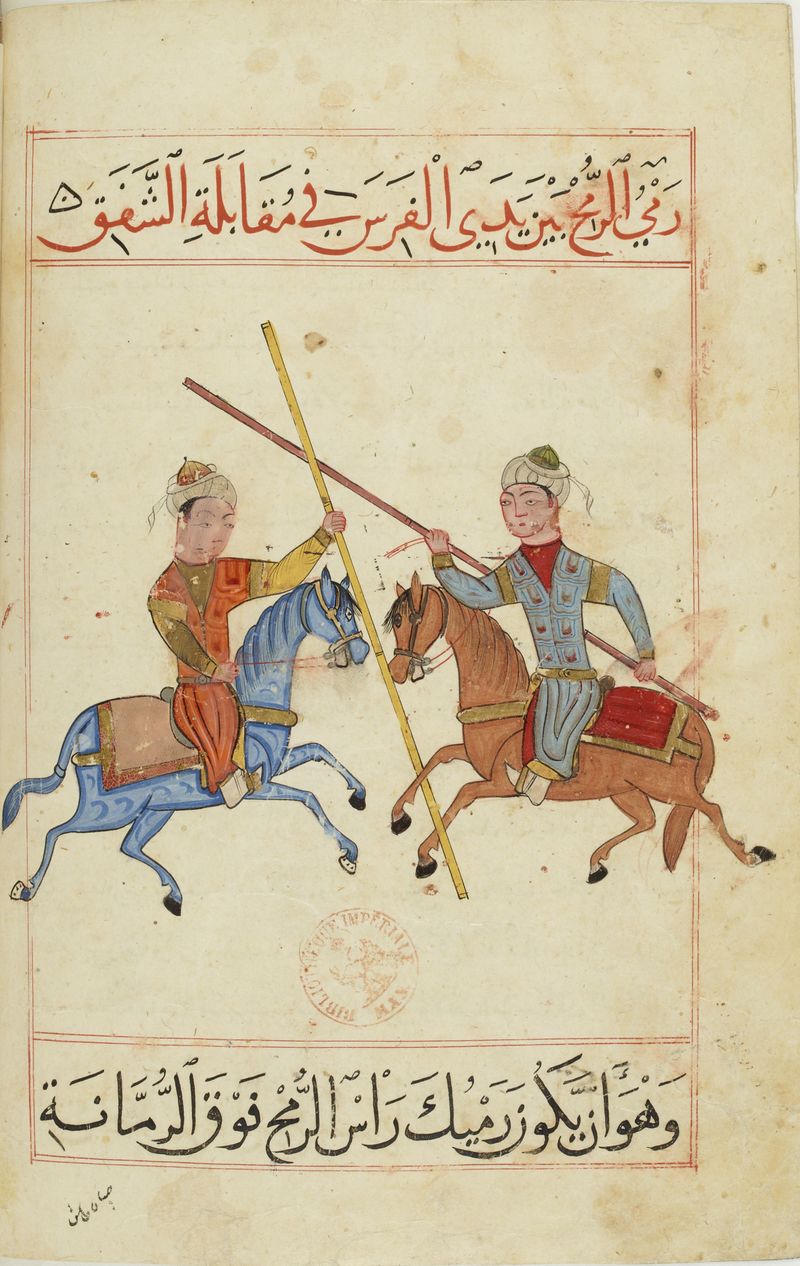 رَمْيُ الرُّمْحِ بَيْنَ يَدَيِ الْفَرَسِ فِي مُقَابَلَةِ الشَّفَقِ
BIBLIOTHEQUE IMPERIALE MAN
وَهْوَ أَنْ يَّكُونَ رَمْيُكَ رَأْسَ الرُّمْحِ فَوْقَ الرُّمَّانَةِ